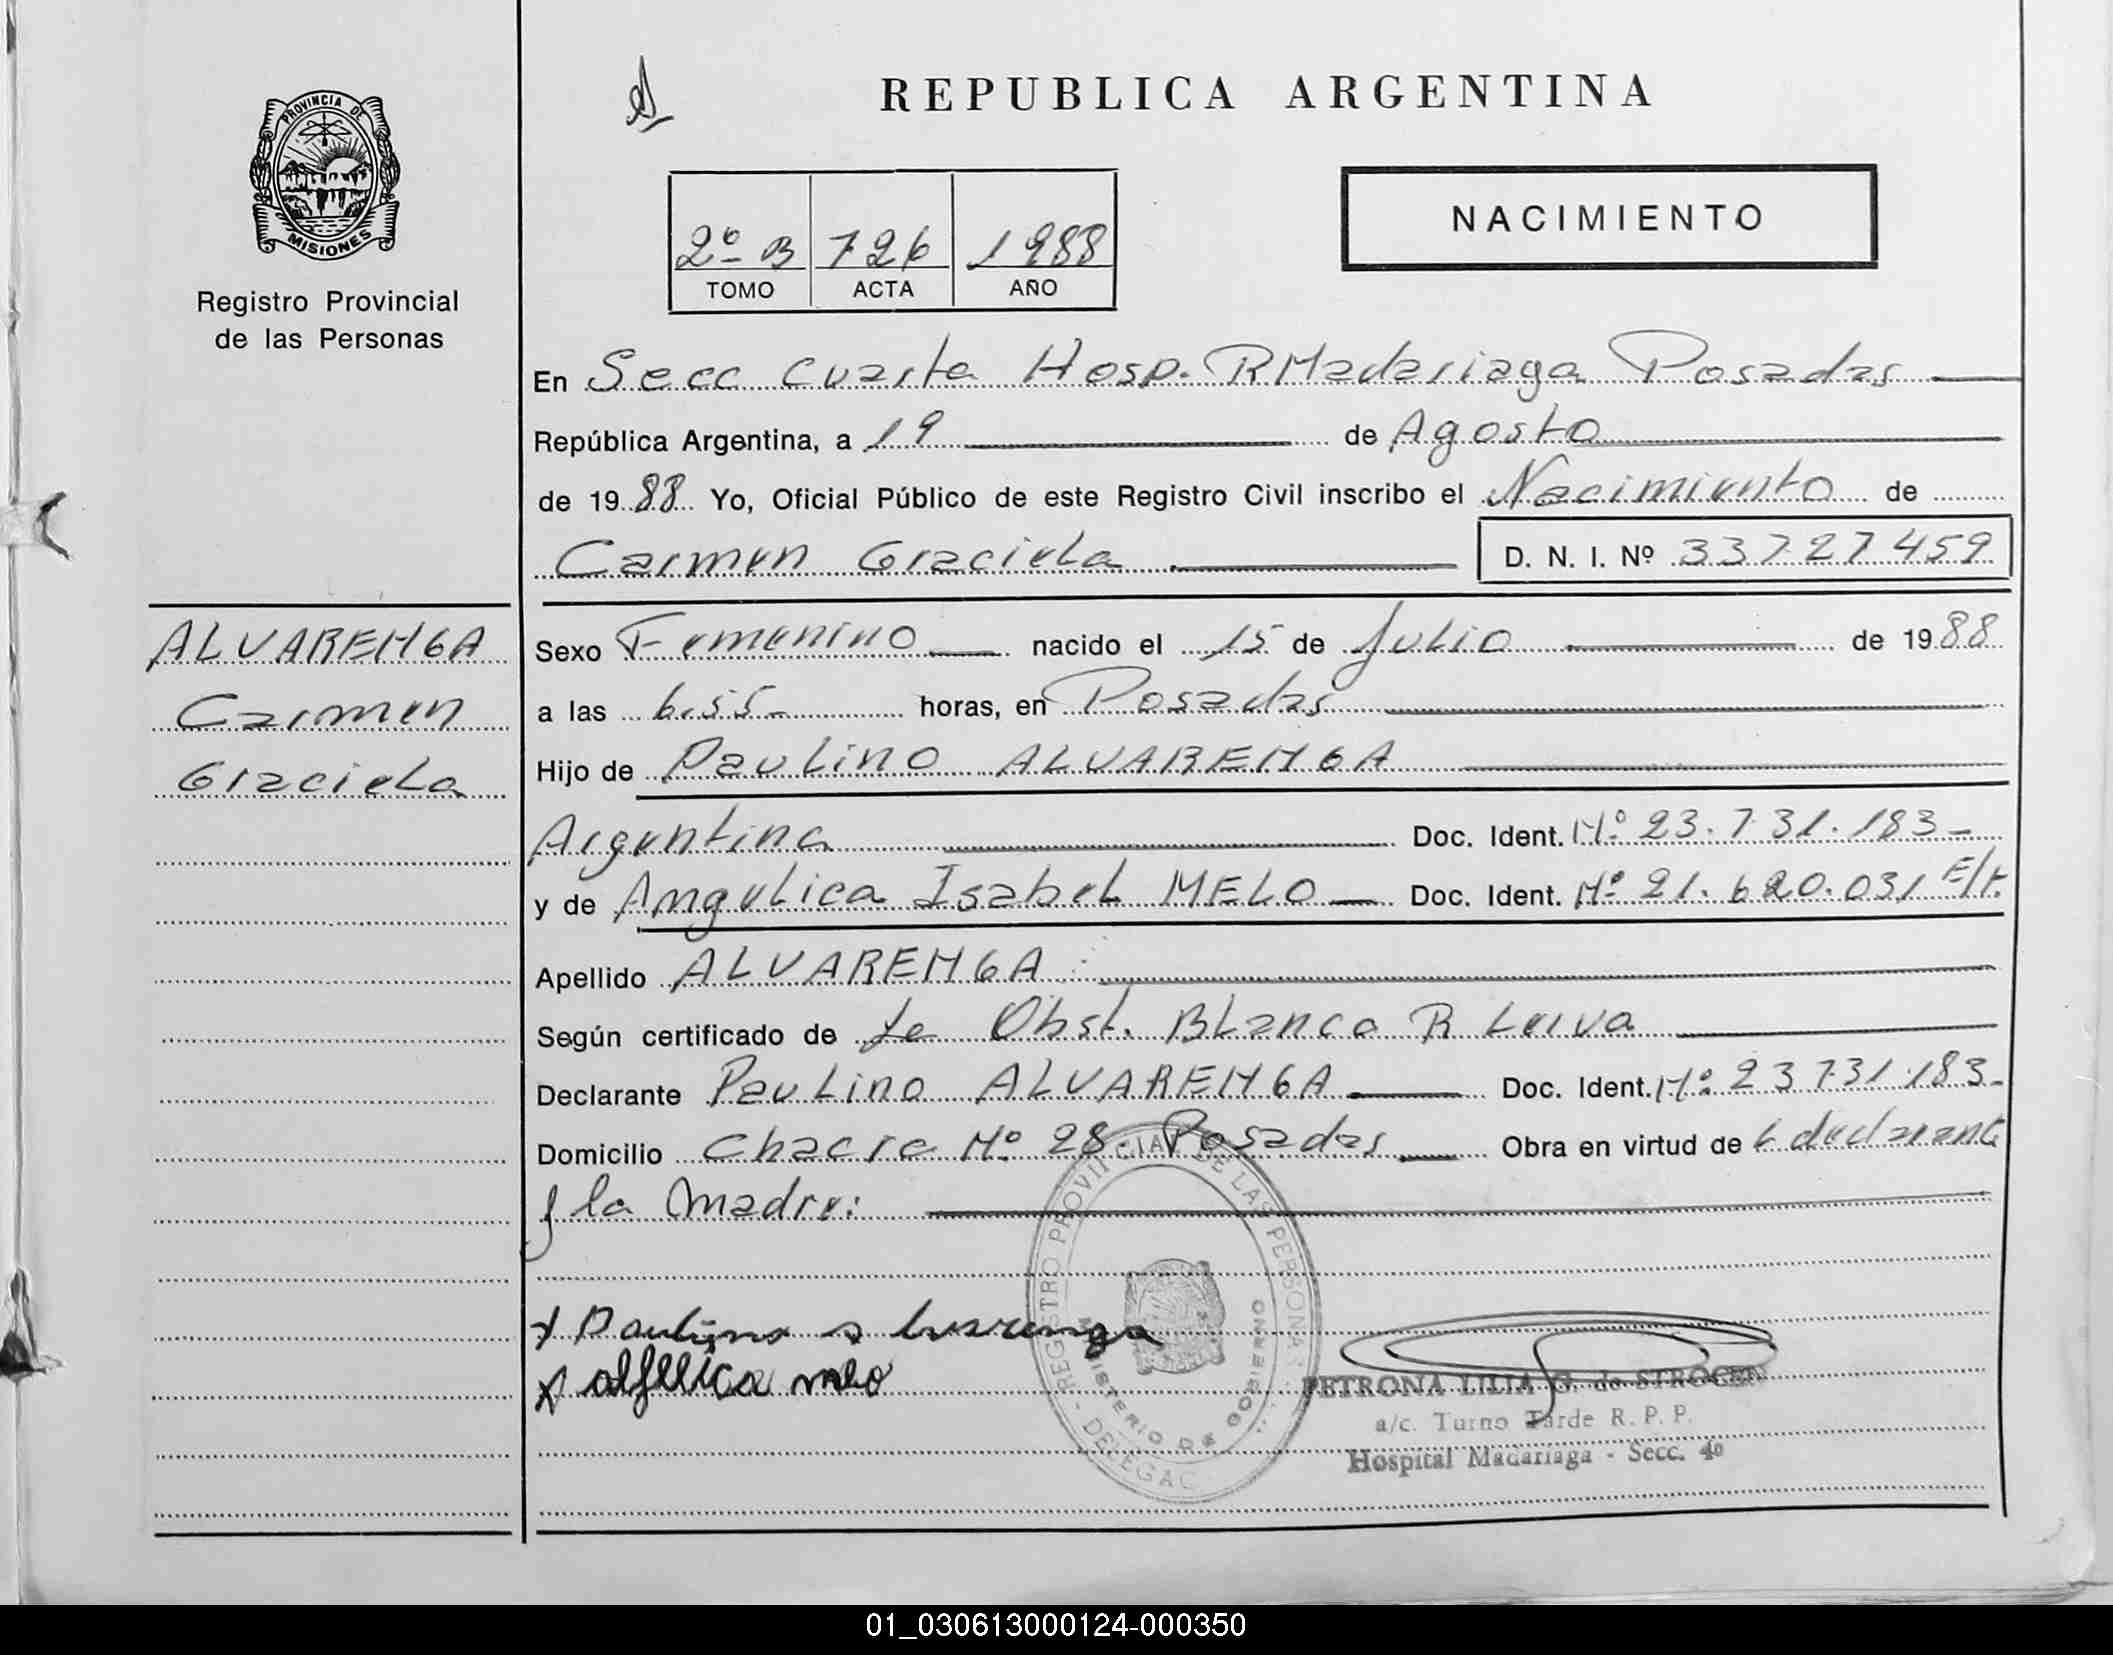 REPUBLICA ARGENTINA
PROVINCIA DE
MISIONES
Registro Provincial
de las Personas
NACIMIENTO
2º B 726 1988
TOMO ACTA AÑO
En Secc Cuarta Hosp. R Madariaga Posadas
República Argentina, a 19 de Agosto
de 19 88 Yo, Oficial Público de este Registro Civil inscribo el Nacimiento de
Carmen Graciela D. N. I. Nº 33727459
ALVARENGA
Carmen
Graciela
Sexo Femenino nacido el 15 de Julio de 19 88
a las 6.55 horas, en Posadas
Hijo de Paulino ALVARENGA
Argentina Doc. Ident. Nº 23.731.183
y de Angelica Isabel MELO Doc. Ident. Nº 21.620.031
Apellido ALVARENGA
Según certificado de la Obst. Blanca R Leiva
Declarante Paulino ALVARENGA Doc. Ident. Nº 23731.183
Domicilio Chacra Nº 28. Posadas Obra en virtud de
y la Madre:
REGISTRO PROVINCIAL DE LAS PERSONAS
MINISTERIO DE GOBIERNO
DELEGAC
PETRONA LILIA G. de STROCEN
a/c. Turno Tarde R. P. P.
Hospital Madariaga - Secc. 4º
01_030613000124-000350